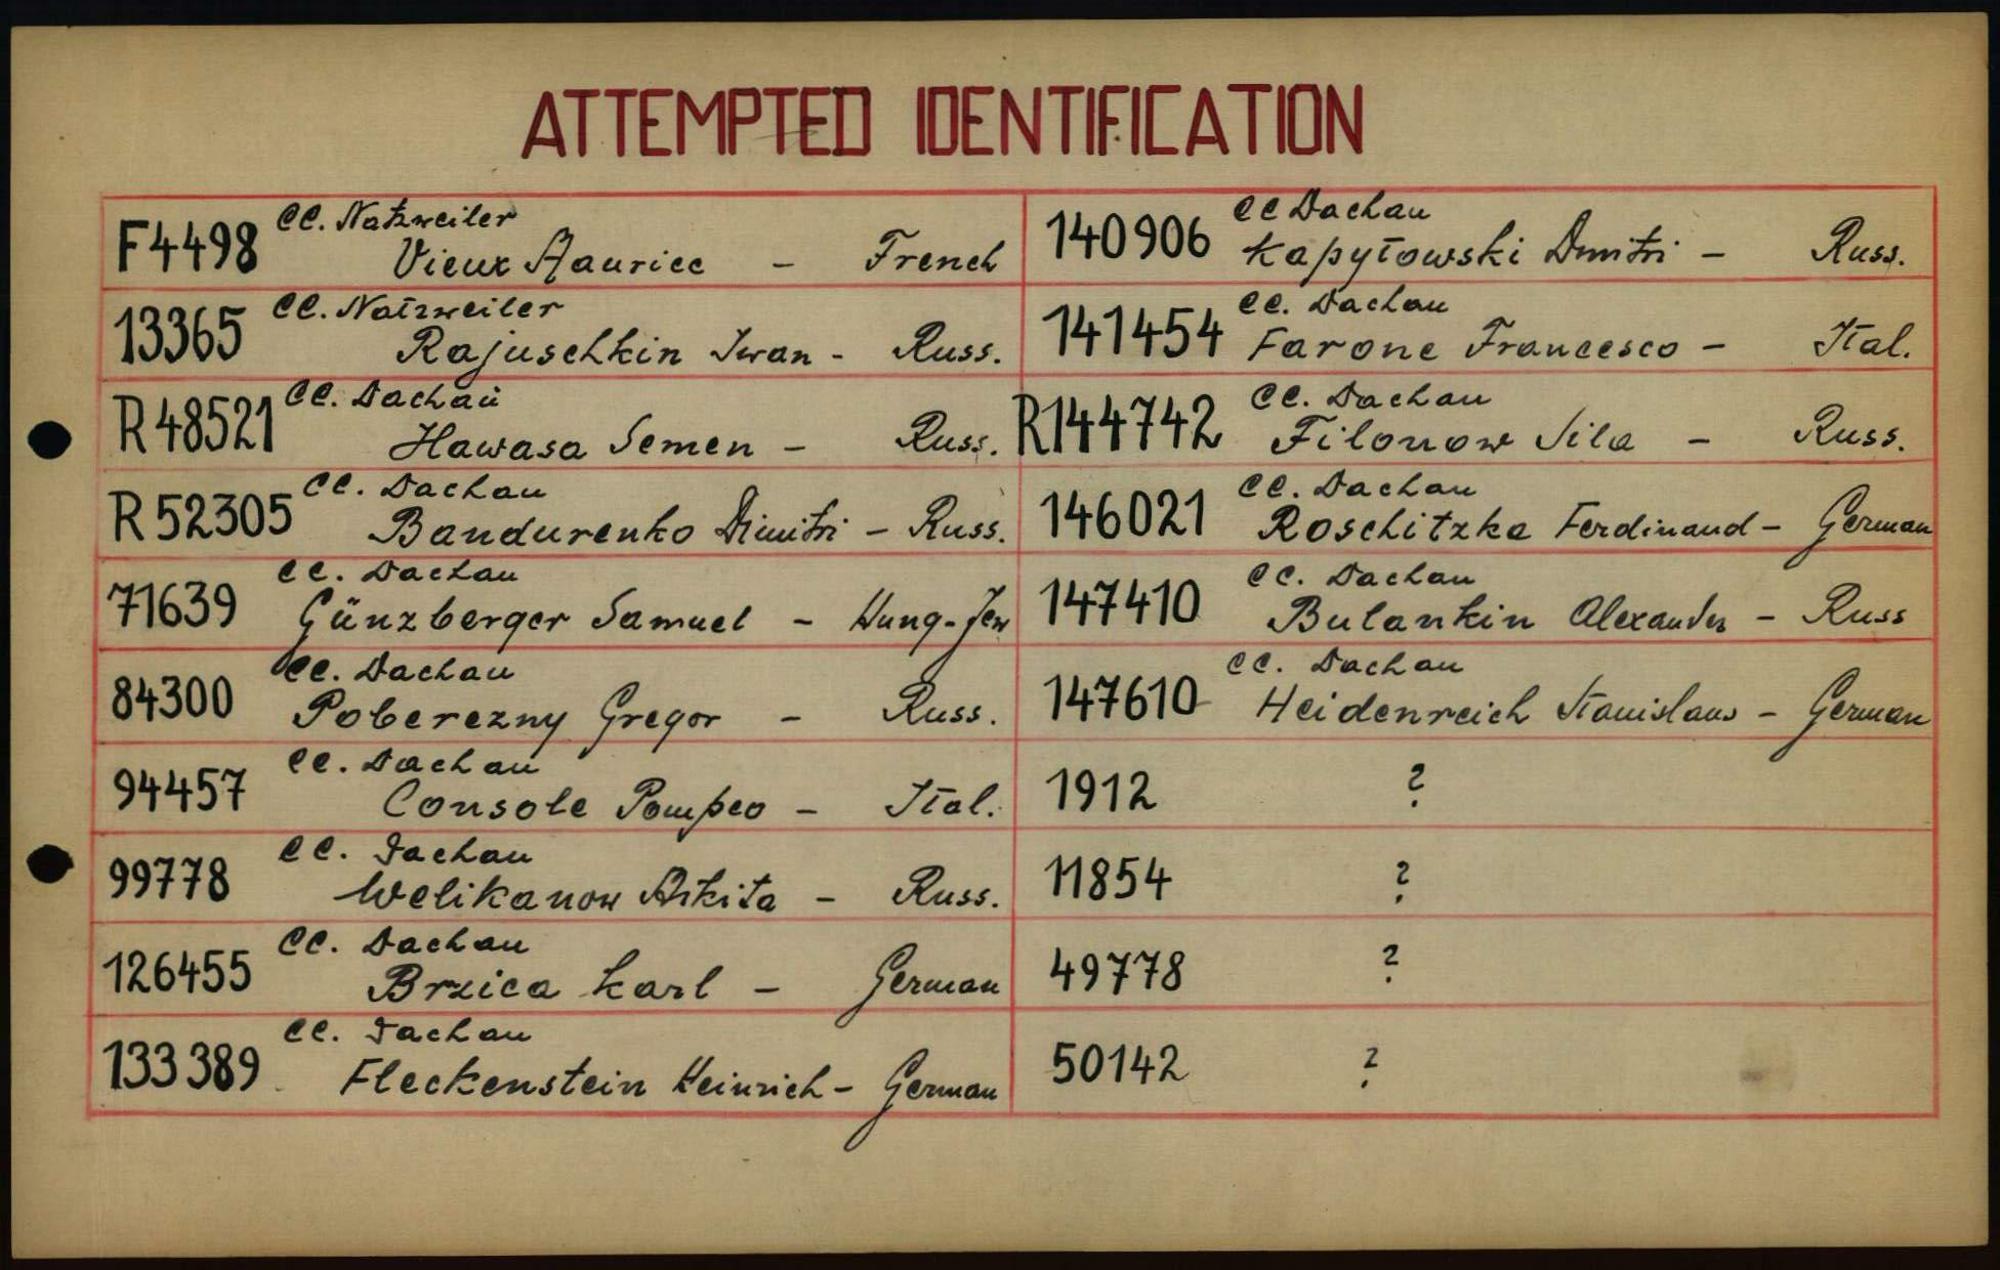 ATTEMPTED IDENTIFICATION
F4498 CC. Natzweiler
Vieux Maurice - French
13365 CC. Natzweiler
Rajuschkin Iwan - Russ.
R48521 CC. Dachau
Hawasa Semen - Russ.
R52305 CC. Dachau
Bandurenko Dimitri - Russ.
71639 CC. Dachau
Günzberger Samuel - Hung-Jew
84300 CC. Dachau
Poberezny Gregor - Russ.
94457 CC. Dachau
Console Pompeo - Ital.
99778 CC. Dachau
Welikanow Nikita - Russ.
126455 CC. Dachau
Brzica Karl - German
133389 CC. Dachau
Fleckenstein Heinrich - German
140906 CC Dachau
Kapyłowski Dmitri - Russ.
141454 CC. Dachau
Farone Francesco - Ital.
R144742 CC. Dachau
Filonow Sila - Russ.
146021 CC. Dachau
Roschitzka Ferdinand - German
147410 CC. Dachau
Bulankin Alexander - Russ
147610 CC. Dachau
Heidenreich Stanislaus - German
1912 ?
11854 ?
49778 ?
50142 ?